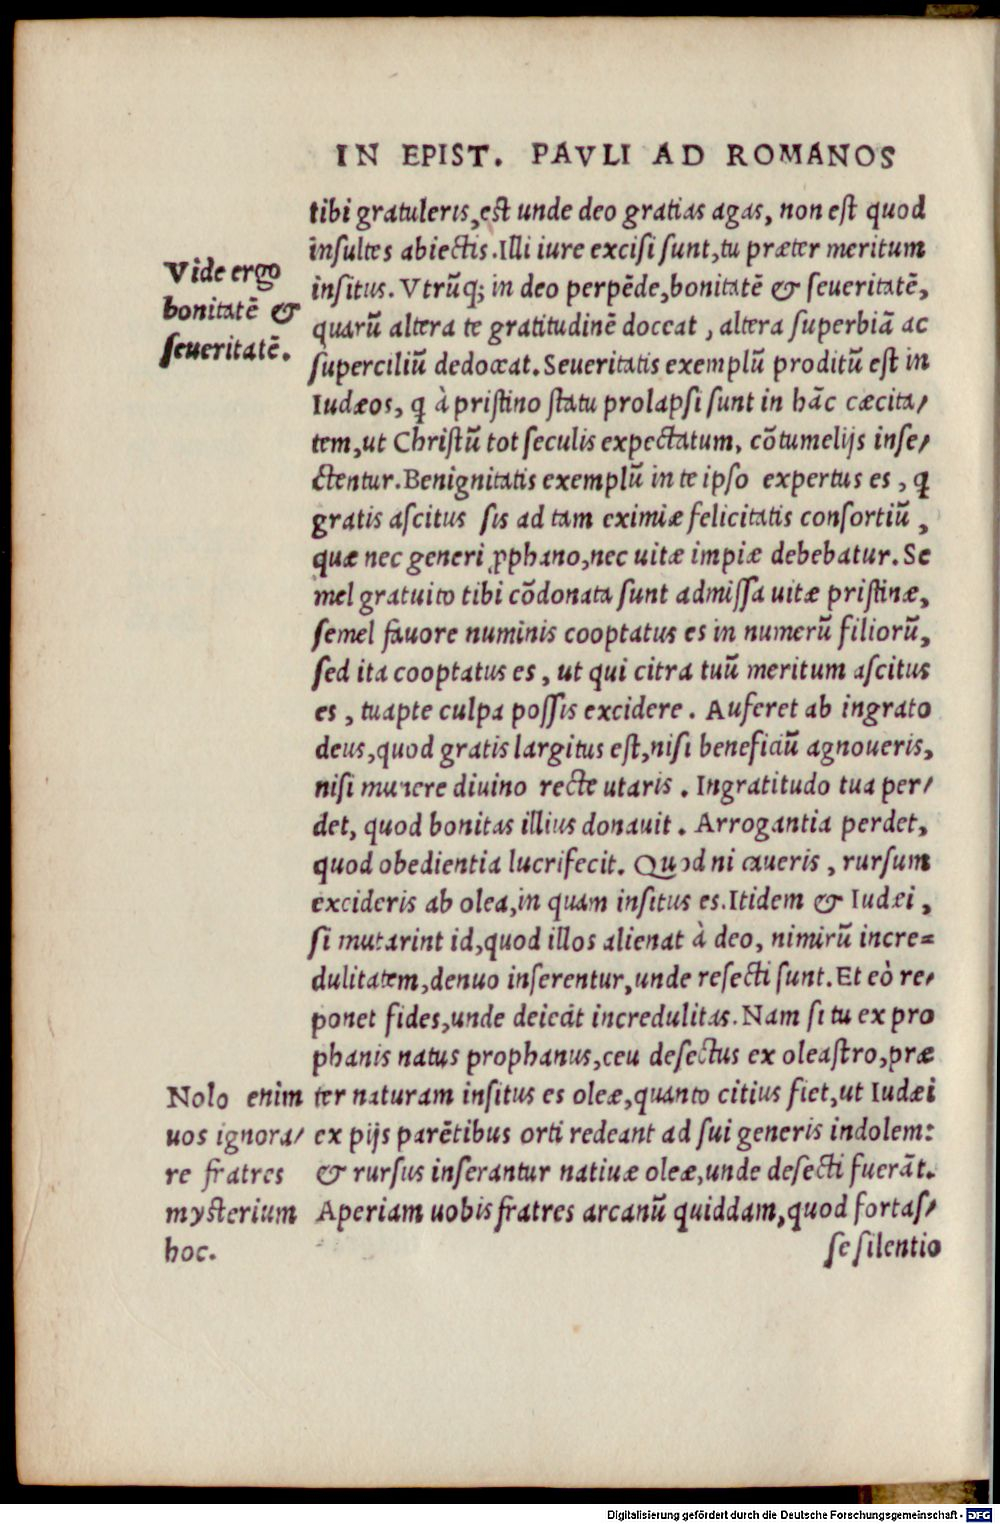 IN EPIST. PAVLI AD ROMANOS
tibi gratuleris, est unde deo gratias agas, non est quod
insultes abiectis. Illi iure excisi sunt, tu præter meritum
insitus. Vtrūq; in deo perpēde, bonitatē & seueritatē,
quarū altera te gratitudinē doceat, altera superbiā ac
superciliū dedoceat. Seueritatis exemplū proditū est in
Iudæos, q à pristino statu prolapsi sunt in hāc cæcita/
tem, ut Christū tot seculis expectatum, cōtumelijs inse/
ctentur. Benignitatis exemplū in te ipso expertus es, q
gratis ascitus sis ad tam eximiæ felicitatis consortiū,
quæ nec generi ꝓphano, nec uitæ impiæ debebatur. Se
mel gratuito tibi cōdonata sunt admissa uitæ pristinæ,
semel fauore numinis cooptatus es in numerū filiorū,
sed ita cooptatus es, ut qui citra tuū meritum ascitus
es, tuapte culpa possis excidere. Auferet ab ingrato
deus, quod gratis largitus est, nisi beneficiū agnoueris,
nisi munere diuino recte utaris. Ingratitudo tua per/
det, quod bonitas illius donauit. Arrogantia perdet,
quod obedientia lucrifecit. Quod ni caueris, rursum
excideris ab olea, in quam insitus es. Itidem & Iudæi,
si mutarint id, quod illos alienat à deo, nimirū incre=
dulitatem, denuo inserentur, unde resecti sunt. Et eò re/
ponet fides, unde deiecit incredulitas. Nam si tu ex pro
phanis natus prophanus, ceu desectus ex oleastro, præ
ter naturam insitus es oleæ, quanto citius fiet, ut Iudæi
ex pijs parētibus orti redeant ad sui generis indolem:
& rursus inserantur natiuæ oleæ, unde desecti fuerāt.
Aperiam uobis fratres arcanū quiddam, quod fortas/
se silentio
Vide ergo
bonitatē &
seueritatē.
Nolo enim
uos ignora/
re fratres
mysterium
hoc.
Digitalisierung gefördert durch die Deutsche Forschungsgemeinschaft - DFG